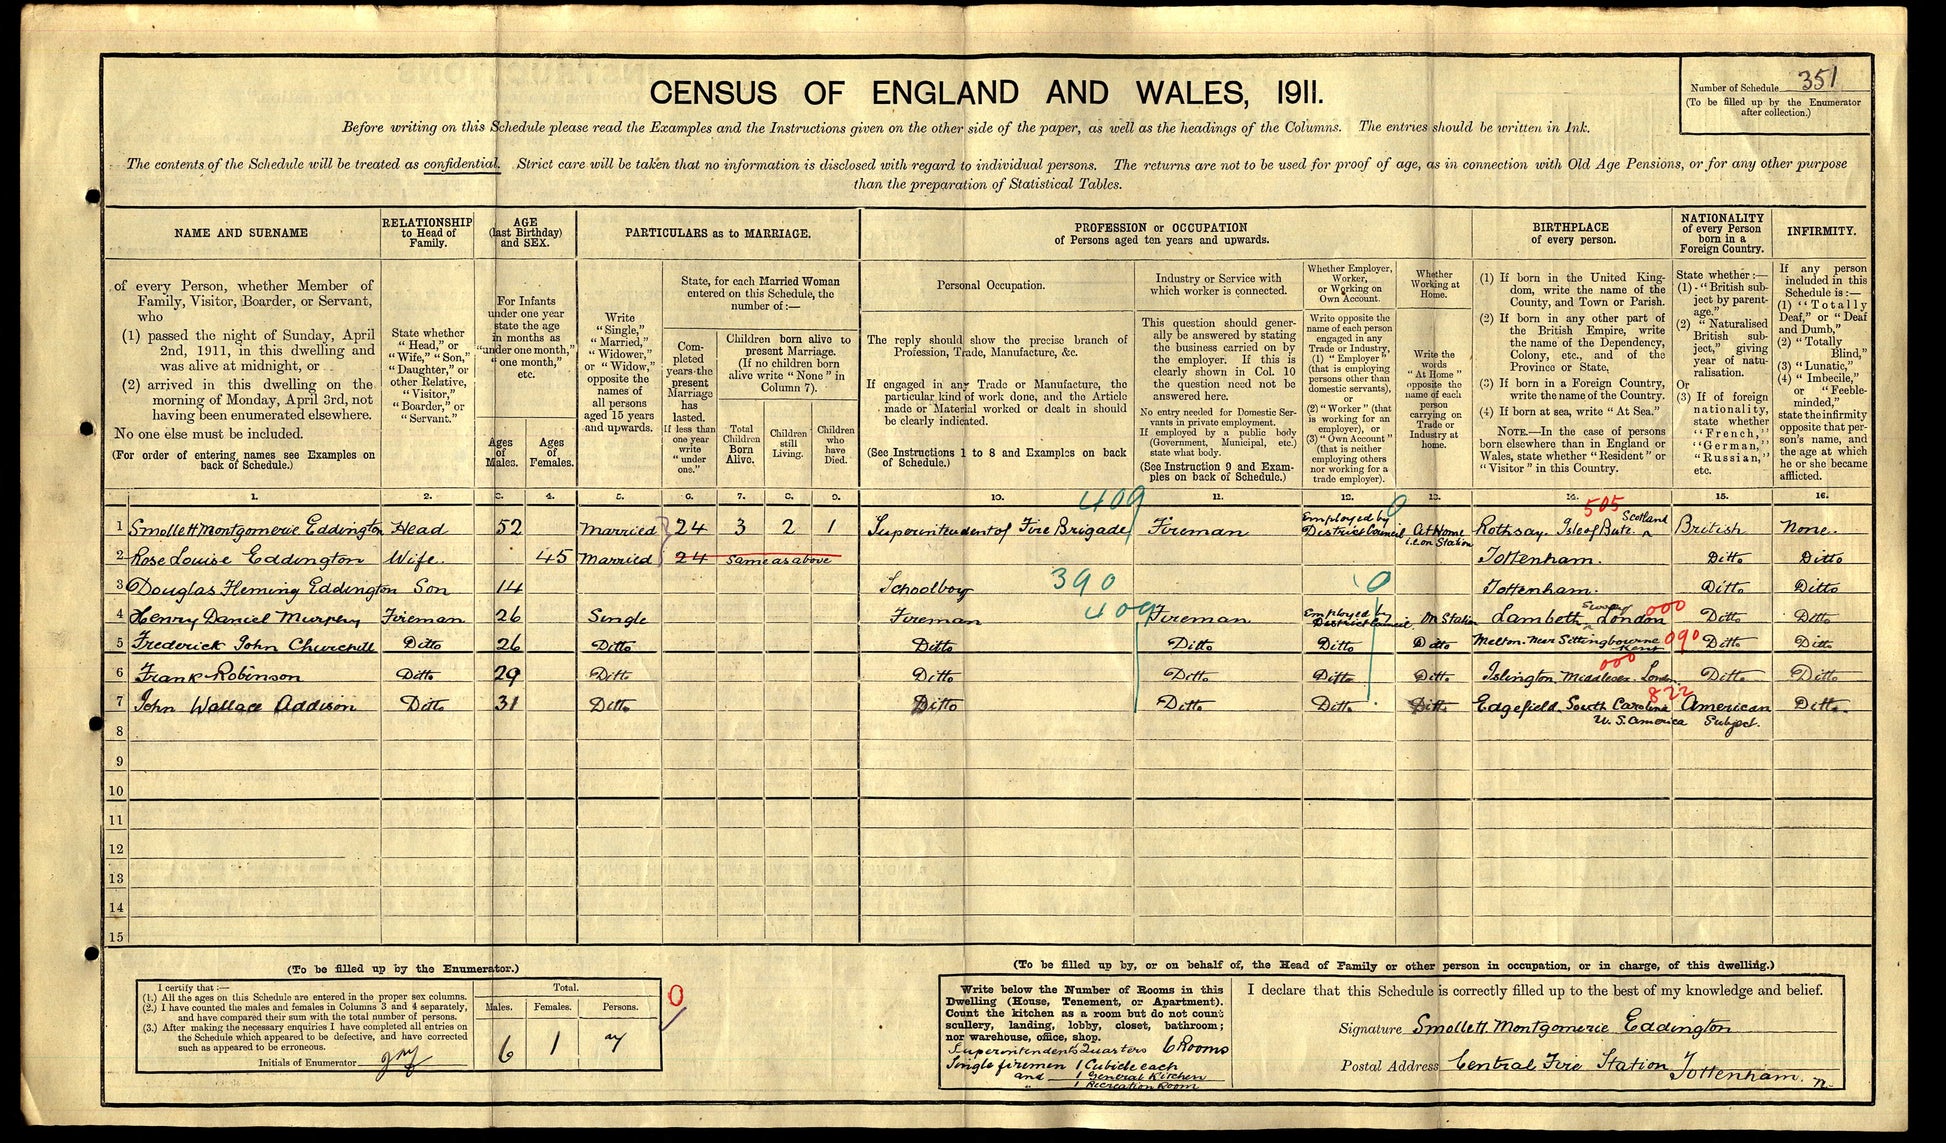 CENSUS OF ENGLAND AND WALES, 1911.
Number of Schedule 351
(To be filled up by the Enumerator
after collection.)
Before writing on this Schedule please read the Examples and the Instructions given on the other side of the paper, as well as the headings of the Columns. The entries should be written in Ink.
The contents of the Schedule will be treated as confidential. Strict care will be taken that no information is disclosed with regard to individual persons. The returns are not to be used for proof of age, as in connection with Old Age Pensions, or for any other purpose
than the preparation of Statistical Tables.
NAME AND SURNAME
of every Person, whether Member of
Family, Visitor, Boarder, or Servant,
who
(1) passed the night of Sunday, April
2nd, 1911, in this dwelling and
was alive at midnight, or
(2) arrived in this dwelling on the
morning of Monday, April 3rd, not
having been enumerated elsewhere.
No one else must be included.
(For order of entering names see Examples on
back of Schedule.)
RELATIONSHIP
to Head of
Family.
State whether
"Head," or
"Wife," "Son,"
"Daughter," or
other Relative,
"Visitor,"
"Boarder," or
"Servant."
AGE
(last Birthday)
and SEX.
For Infants
under one year
state the age
in months as
"under one month,"
"one month,"
etc.
Ages
of
Males.
Ages
of
Females.
PARTICULARS as to MARRIAGE.
Write
"Single,"
"Married,"
"Widower,"
or "Widow,"
opposite the
names of
all persons
aged 15 years
and upwards.
State, for each Married Woman
entered on this Schedule, the
number of :—
Com-
pleted
years the
present
Marriage
has
lasted.
If less than
one year
write
"under
one."
Children born alive to
present Marriage.
(If no children born
alive write "None" in
Column 7).
Total
Children
Born
Alive.
Children
still
Living.
Children
who
have
Died.
PROFESSION or OCCUPATION
of Persons aged ten years and upwards.
Personal Occupation.
The reply should show the precise branch of
Profession, Trade, Manufacture, &c.
If engaged in any Trade or Manufacture, the
particular kind of work done, and the Article
made or Material worked or dealt in should
be clearly indicated.
(See Instructions 1 to 8 and Examples on back
of Schedule.)
Industry or Service with
which worker is connected.
This question should gener-
ally be answered by stating
the business carried on by
the employer. If this is
clearly shown in Col. 10
the question need not be
answered here.
No entry needed for Domestic Ser-
vants in private employment.
If employed by a public body
(Government, Municipal, etc.)
state what body.
(See Instruction 9 and Exam-
ples on back of Schedule.)
Whether Employer,
Worker,
or Working on
Own Account.
Write opposite the
name of each person
engaged in any
Trade or Industry,
(1) "Employer"
(that is employing
persons other than
domestic servants),
or
(2) "Worker" (that
is working for an
employer), or
(3) "Own Account"
(that is neither
employing others
nor working for a
trade employer).
Whether
Working at
Home.
Write the
words
"At Home"
opposite the
name of each
person
carrying on
Trade or
Industry at
home.
BIRTHPLACE
of every person.
(1) If born in the United King-
dom, write the name of the
County, and Town or Parish.
(2) If born in any other part of
the British Empire, write
the name of the Dependency,
Colony, etc., and of the
Province or State,
(3) If born in a Foreign Country,
write the name of the Country.
(4) If born at sea, write "At Sea."
NOTE.—In the case of persons
born elsewhere than in England or
Wales, state whether "Resident" or
"Visitor" in this Country.
NATIONALITY
of every Person
born in a
Foreign Country.
State whether :—
(1) "British sub-
ject by parent-
age."
(2) "Naturalised
British sub-
ject," giving
year of natu-
ralisation.
Or
(3) If of foreign
nationality,
state whether
"French,"
"German,"
"Russian,"
etc.
INFIRMITY.
If any person
included in this
Schedule is :—
(1) "Totally
Deaf," or "Deaf
and Dumb,"
(2) "Totally
Blind,"
(3) "Lunatic,"
(4) "Imbecile,"
or "Feeble-
minded,"
state the infirmity
opposite that per-
son's name, and
the age at which
he or she became
afflicted.
1. 2. 3. 4. 5. 6. 7. 8. 9. 10. 11. 12. 13. 14. 15. 16.
409 0 505
1 Smollett Montgomerie Eddington Head 52 Married 24 3 2 1 Superintendent of Fire Brigade Fireman Employed by District Council At Home i.e. on Station Rothsay. Isle of Bute. Scotland British None.
2 Rose Louise Eddington Wife. 45 Married 24 Same as above Tottenham. Ditto Ditto
3 Douglas Fleming Eddington Son 14 Schoolboy 390 0 Tottenham. Ditto Ditto
4 Henry Daniel Murphy Fireman 26 Single Fireman 409 Fireman Employed by District Council. On Station Lambeth Surrey London 000 Ditto Ditto
5 Frederick John Churchill Ditto 26 Ditto Ditto Ditto Ditto Ditto Melton. Near Sittingbourne Kent 090 Ditto Ditto
6 Frank Robinson Ditto 29 Ditto Ditto Ditto Ditto Ditto Islington. Middlesex. London 000 Ditto Ditto
7 John Wallace Addison Ditto 31 Ditto Ditto Ditto Ditto Ditto Edgefield. South Carolina 822 American Ditto
U.S. America Subject.
8
9
10
11
12
13
14
15
(To be filled up by the Enumerator.)
I certify that :—
(1.) All the ages on this Schedule are entered in the proper sex columns.
(2.) I have counted the males and females in Columns 3 and 4 separately,
and have compared their sum with the total number of persons.
(3.) After making the necessary enquiries I have completed all entries on
the Schedule which appeared to be defective, and have corrected
such as appeared to be erroneous.
Initials of Enumerator
Total.
Males. Females. Persons.
6 1 7
0
(To be filled up by, or on behalf of, the Head of Family or other person in occupation, or in charge, of this dwelling.)
Write below the Number of Rooms in this
Dwelling (House, Tenement, or Apartment).
Count the kitchen as a room but do not count
scullery, landing, lobby, closet, bathroom;
nor warehouse, office, shop.
Superintendents Quarters 6 Rooms
Single firemen 1 Cubicle each
and 1 General Kitchen
" 1 Recreation Room
I declare that this Schedule is correctly filled up to the best of my knowledge and belief.
Signature Smollett Montgomerie Eddington
Postal Address Central Fire Station Tottenham. N.